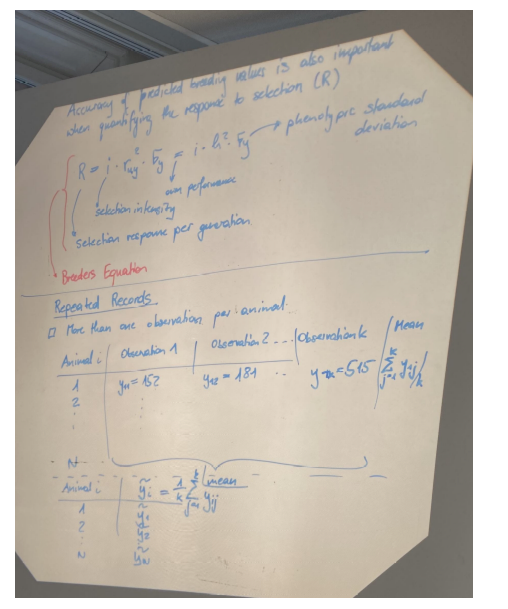 Accuracy of predicted breeding values is also important
when quantifying the response to selection (R)
R = i · r²uy · σy = i · h² · σy → phenotypic standard
deviation
own performance
selection intensity
selection response per generation
Breeders Equation
Repeated Records
□ More than one observation per animal.
Animal i | Observation 1 | Observation 2 ... | Observation k | Mean
1 y11 = 152 y12 = 181 .. y1k = 515 ∑ j=1 k yij/k
2 :
:
N
Animal i | mean
ỹi = 1/k ∑ j=1 k yij
1 ỹ1
2 ỹ2
: :
N ỹN